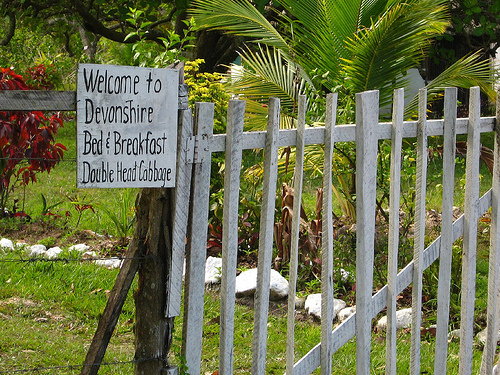 Welcome to
Devonshire
Bed & Breakfast
Double Head Cabbage